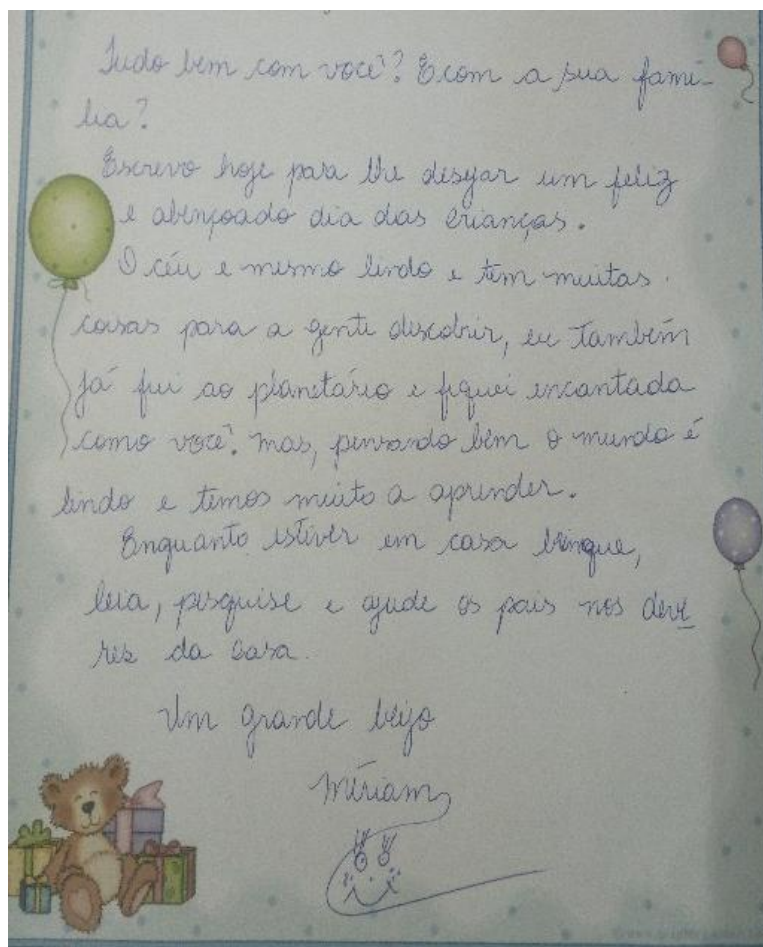 Tudo bem com você? E com a sua famí-
lia?
Escrevo hoje para lhe desejar um feliz
e abençoado dia das crianças.
O céu e mesmo lindo e tem muitas
coisas para a gente descobrir, eu também
já fui ao planetário e fiquei encantada
como você. Mas, pensando bem o mundo é
lindo e temos muito a aprender.
Enquanto estiver em casa brinque,
leia, pesquise e ajude os pais nos deve
res da casa.
Um grande beijo
Míriam